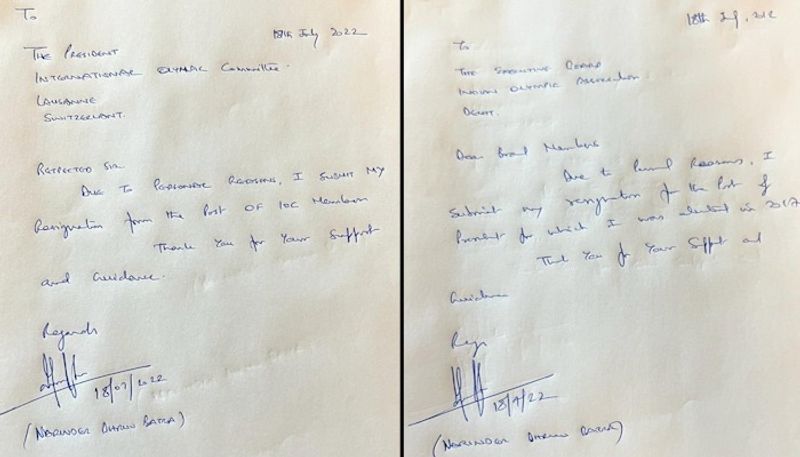 To
18th July 2022
The President
International Olympic Committee.
Lausanne
Switzerland.
Respected Sir
Due to Personal Reasons, I submit my
Resignation from the Post of IOC Member
Thank You for Your Support
and Guidance.
Regards
18/07/2022
(Narinder Dhruv Batra)
18th July, 2012
To
The Executive Board
Indian Olympic Association
Delhi.
Dear Board Members
Due to Personal Reasons, I
Submit my resignation for the Post of
President for which I was elected in 2017
Thank You for Your Support and
Guidance
Regs
18/7/22
(Narinder Dhruv Batra)